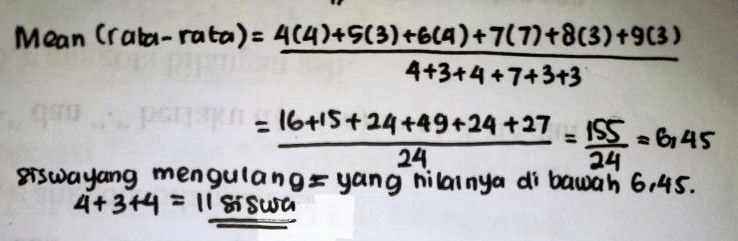 Mean (rata-rata) = 4(4)+5(3)+6(4)+7(7)+8(3)+9(3)
4+3+4+7+3+3
= 16+15+24+49+24+27 = 155 = 6,45
24 24
siswa yang mengulang = yang nilainya di bawah 6,45.
4+3+4 = 11 siswa